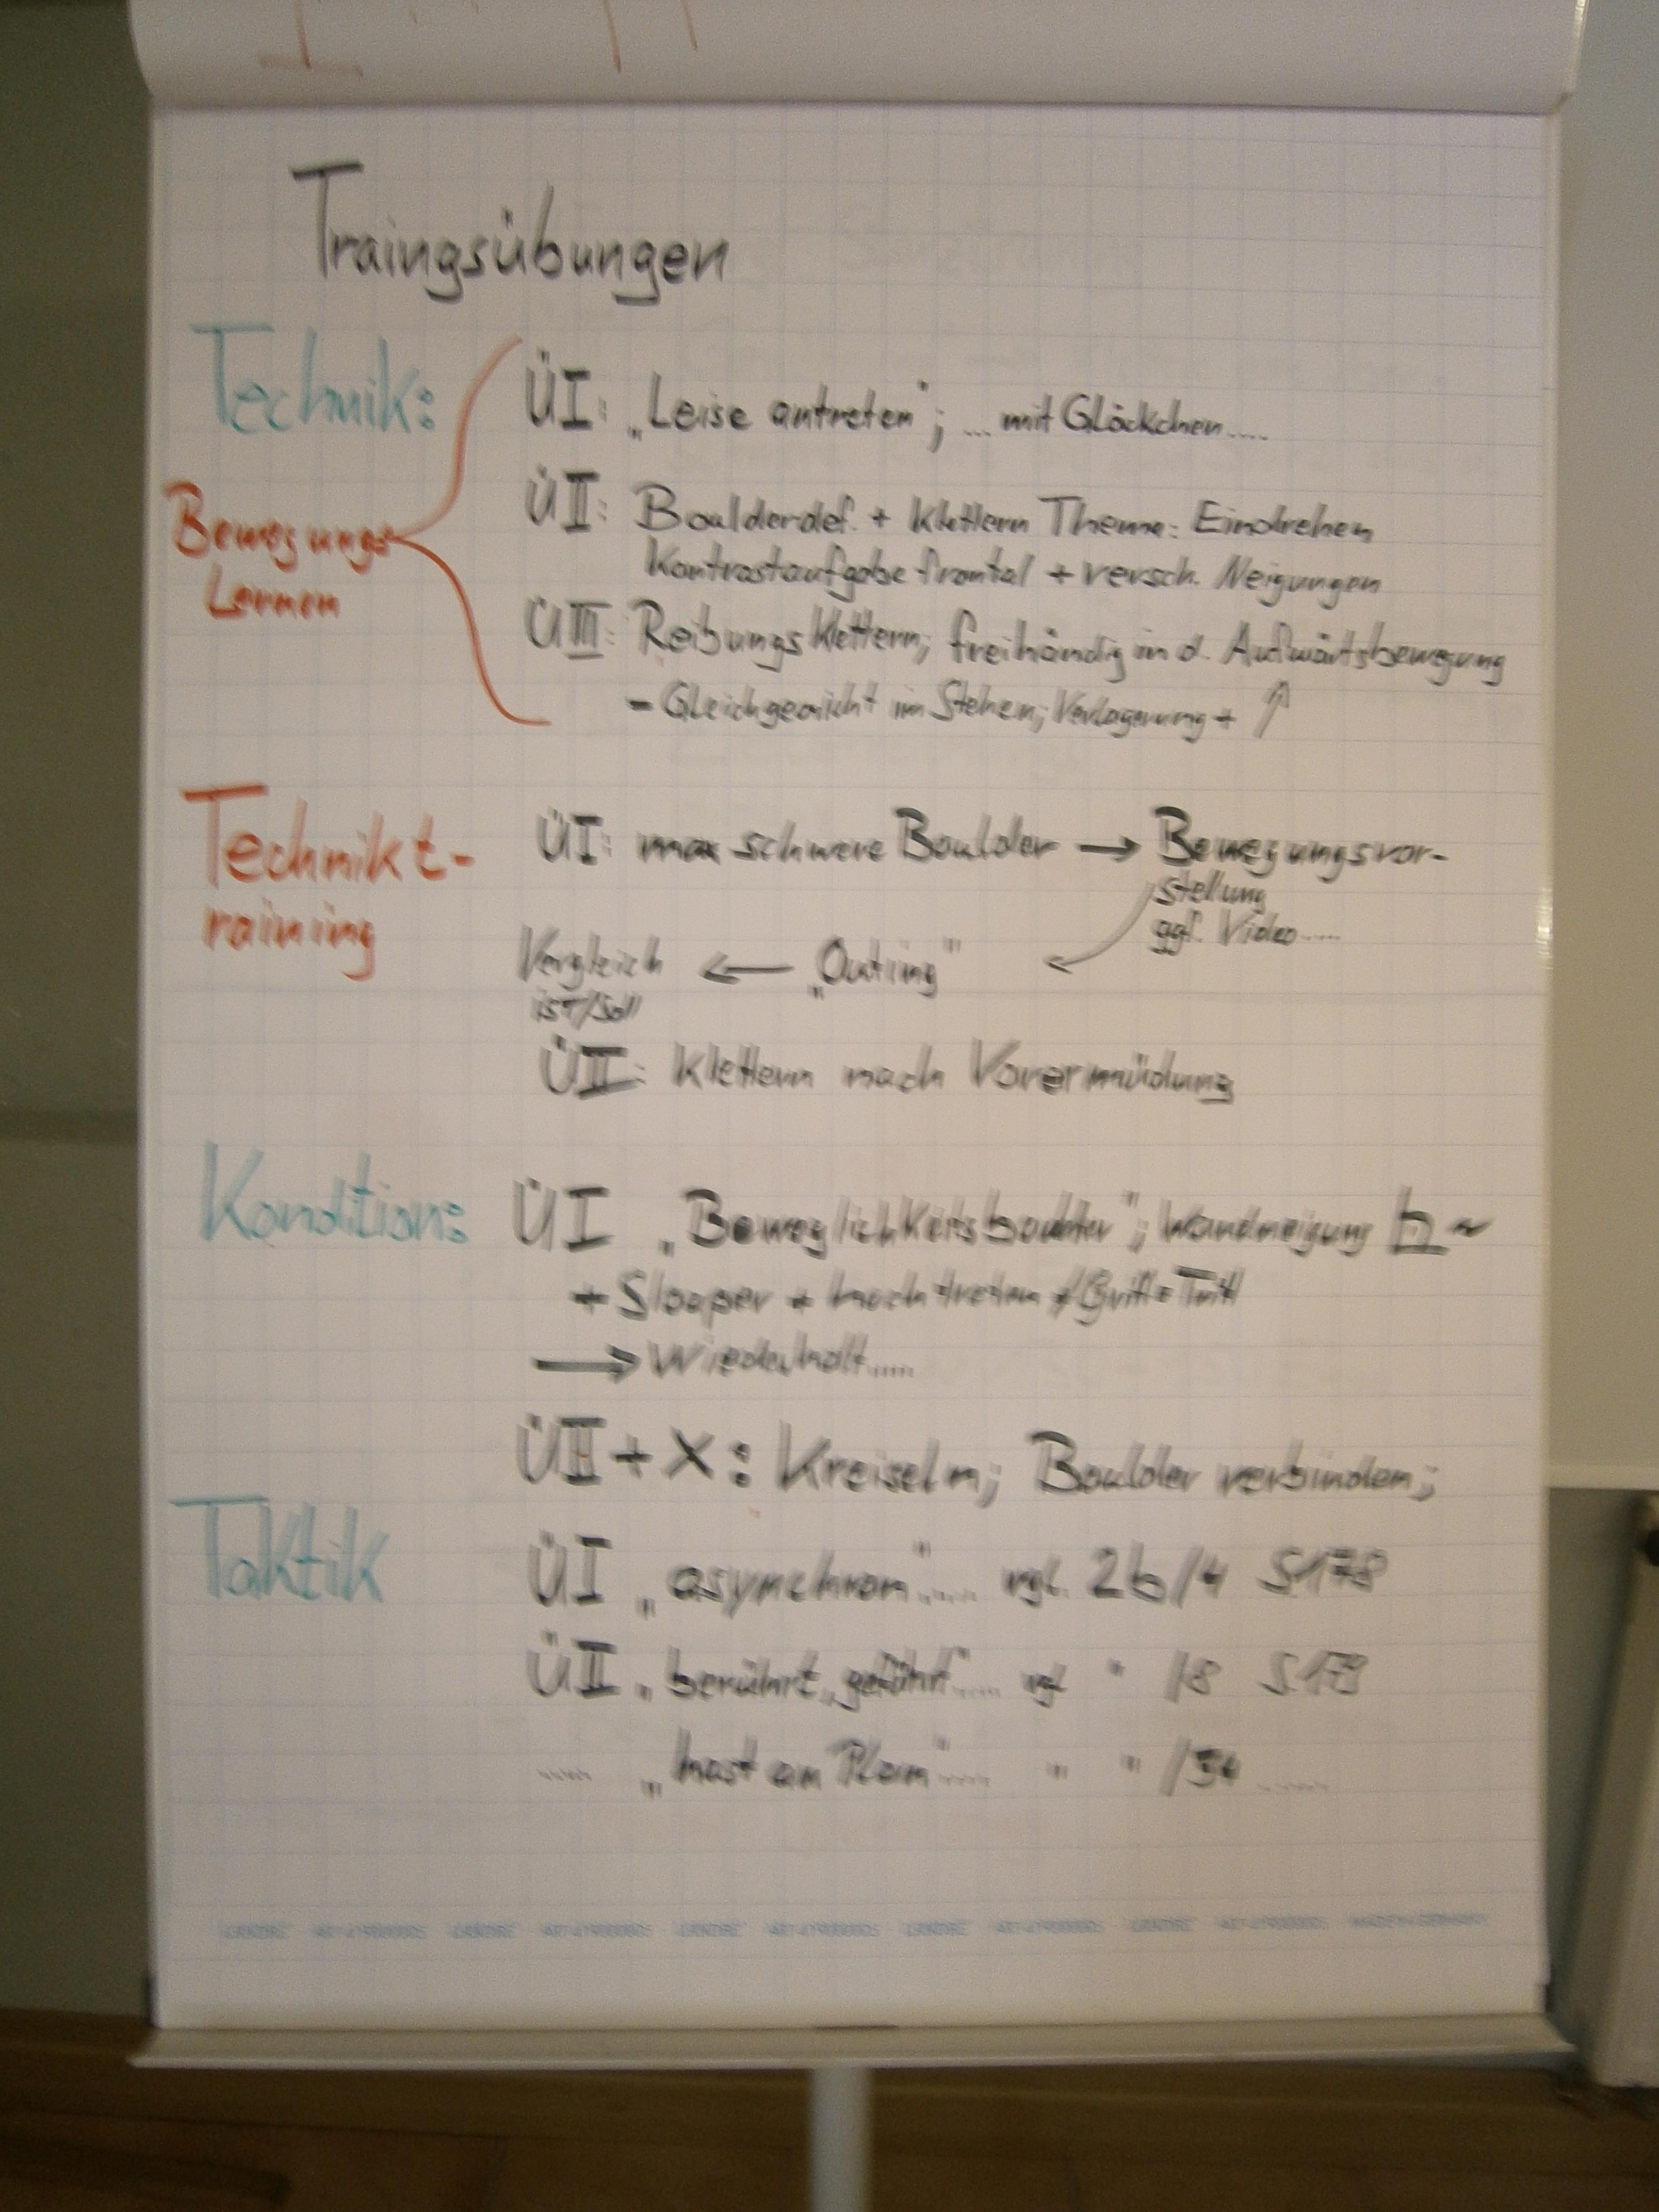 Traingsübungen
Technik:
ÜI: „Leise antreten"; ... mit Glöckchen....
Bewegungs
Lernen
ÜII: Boulderdef. + Klettern Thema: Eindrehen
Kontrastaufgabe frontal + versch. Neigungen
ÜIII: Reibungsklettern; freihändig in d. Aufwärtsbewegung
- Gleichgewicht im Stehen; Verlagerung + ↑
Technikt-
raining
ÜI: max schwere Boulder → Bewegungsvor-
stellung
ggf. Video....
Vergleich ← „Outing"
ist/Soll
ÜII: Klettern nach Vorermüdung
Kondition:
ÜI „Beweglichkeitsboulder"; Wandneigung
+ Slooper + hochtreten / Griff = Tritt
→ Wiederholt.....
ÜII + X: Kreiseln; Boulder verbinden;
Taktik
ÜI „asynchron".... vgl. 2b/4 S178
ÜII „berührt, geführt".... vgl " /8 S179
..... „hast an Plan"..... " " /34 ......